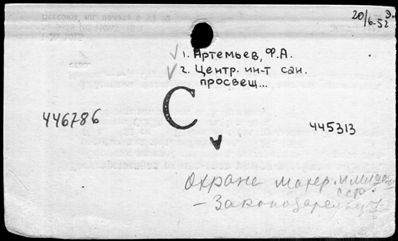 20/6-52
1. Артемьев, Ф.А.
2. Центр. ин-т сан.
просвещ...
С
446786
445313
А
Охрана матер. и младен.
СССР
- Законодательство